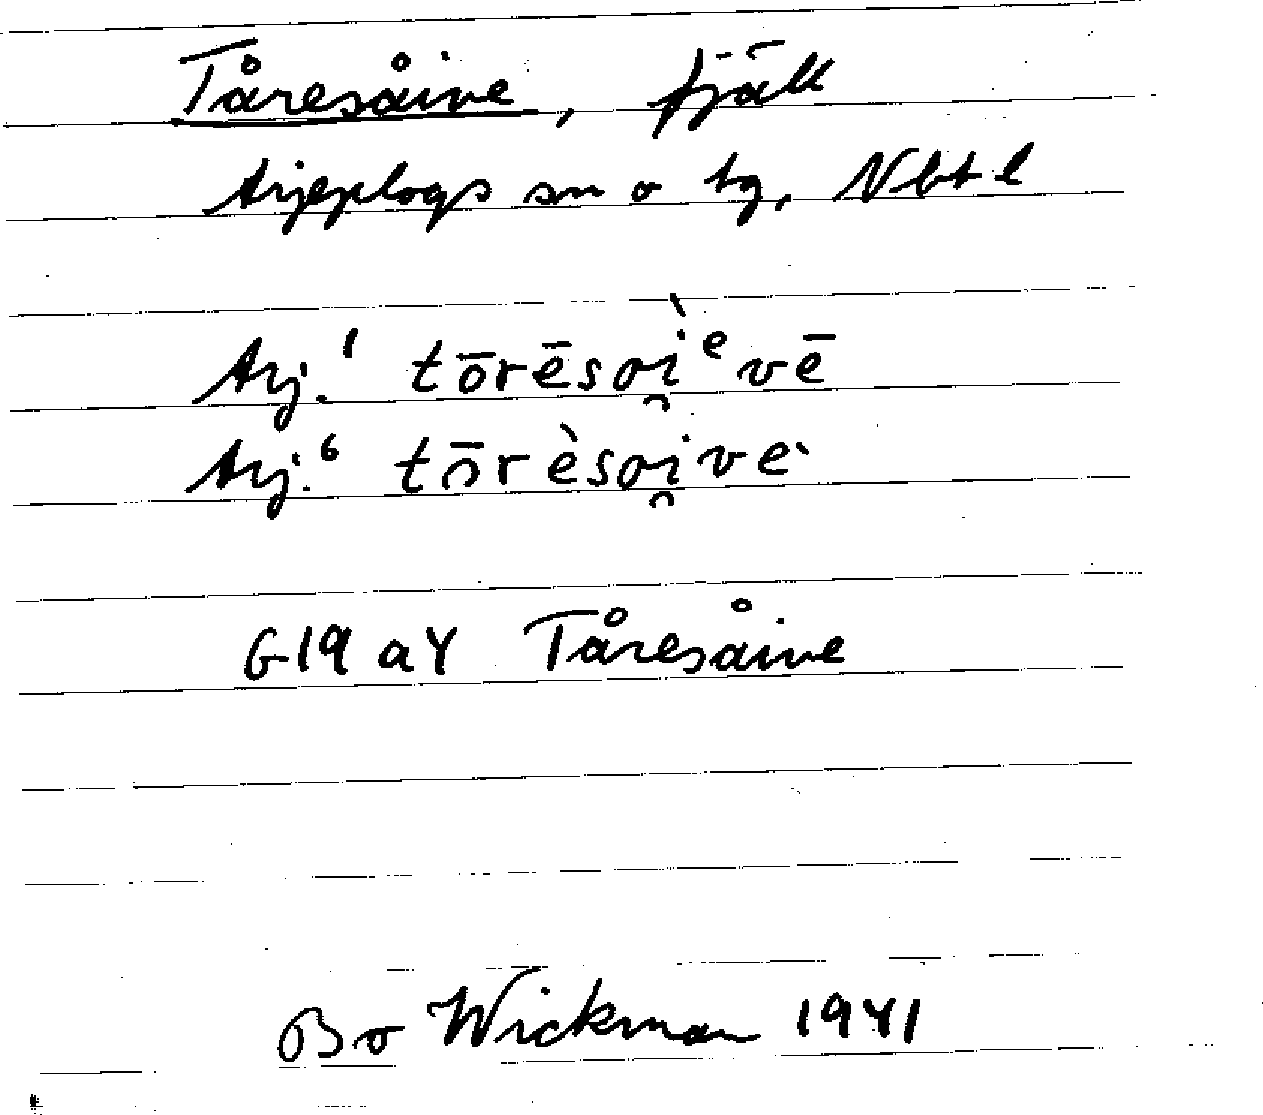 Tåresåive, fjäll
Arjeplogs sn o tg, Nbtl
Arj.¹ tōrēsoì̯ᵉvē
Arj.⁶ tō̭rèsoi̯ve̓
G19 a4 Tåresåive
Bo Wickman 1941